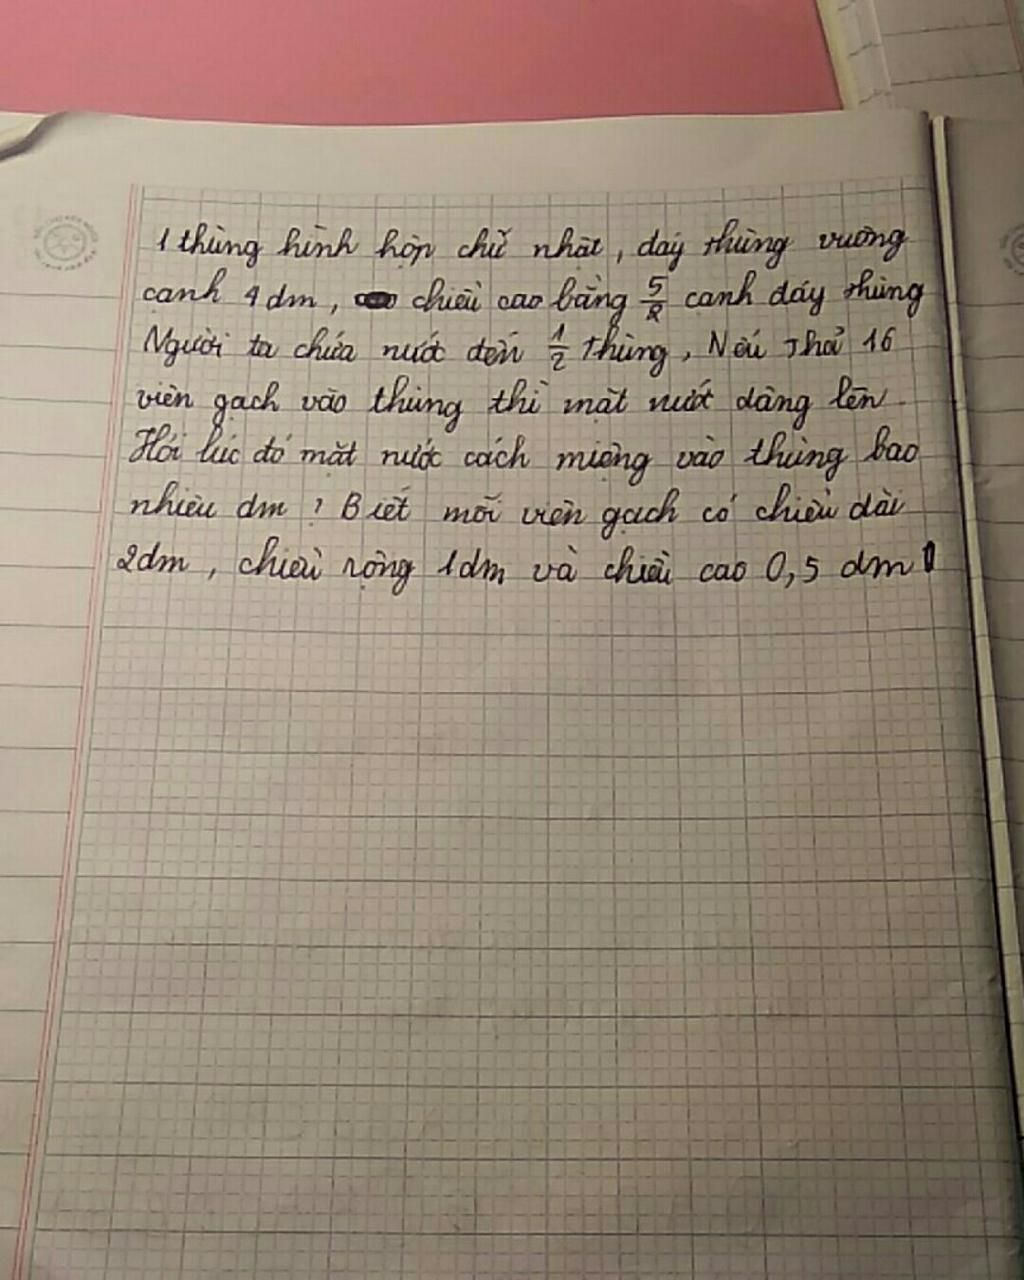 1 thùng hình hộp chữ nhật, đáy thùng vuông
cạnh 4 dm, chiều cao bằng 5/2 cạnh đáy thùng
Người ta chứa nước đến 1/2 thùng, Nếu thả 16
viên gạch vào thùng thì mặt nước dâng lên.
Hỏi lúc đó mặt nước cách miệng vào thùng bao
nhiêu dm ? Biết mỗi viên gạch có chiều dài
2dm, chiều rộng 1dm và chiều cao 0,5 dm